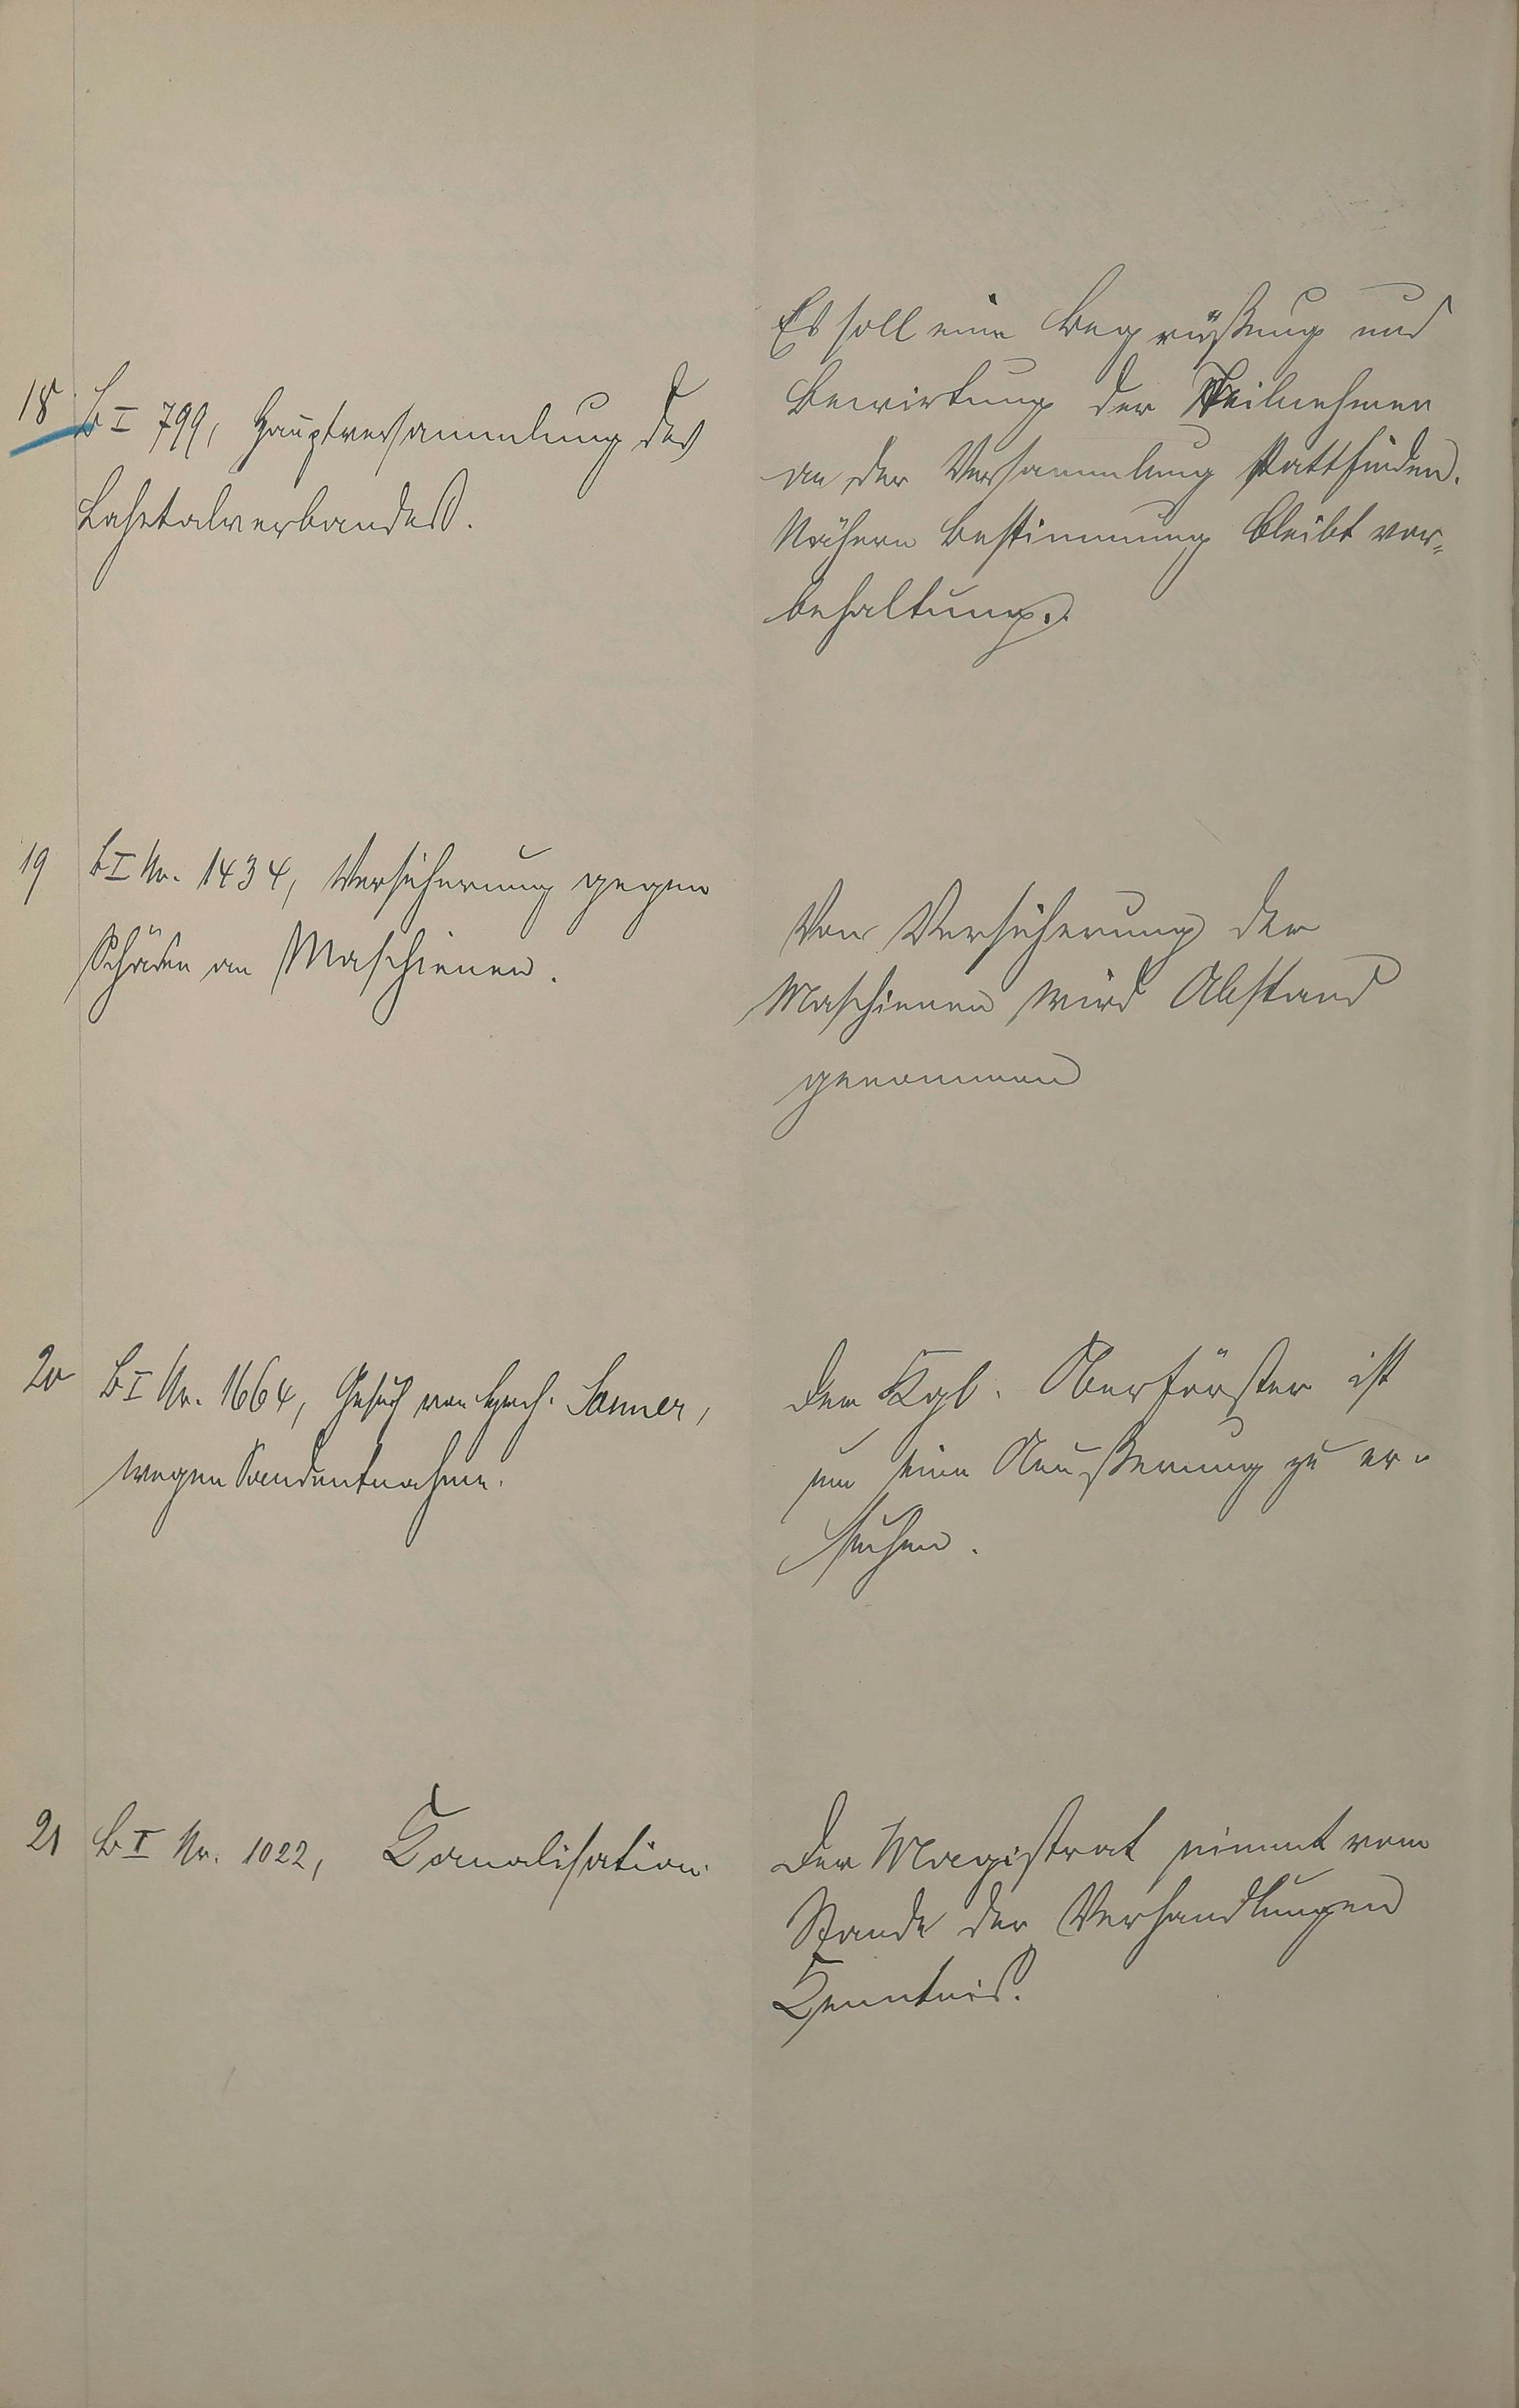 18 B I 799, Hauptversammlung des
Lahntalverbandes.
Es soll eine Begrüßung und
Bewirtung der Teilnehmer
an der Versammlung stattfinden.
Nähere Bestimmung bleibt vor=
behalten.
19 B I Nr. 1434, Versicherung gegen
Schäden an Maschienen.
Von Versicherung der
Maschienen wird Abstand
genommen
20 B I Nr. 1664, Gesuch von Sanner,
wegen Sandentnahme.
Der Kgl. Oberförster ist
um eine Aeußerung zu er=
suchen.
21 B I Nr. 1022, Kanalisation.
Der Magistrat nimmt vom
Stande der Verhandlungen
Kenntnis.